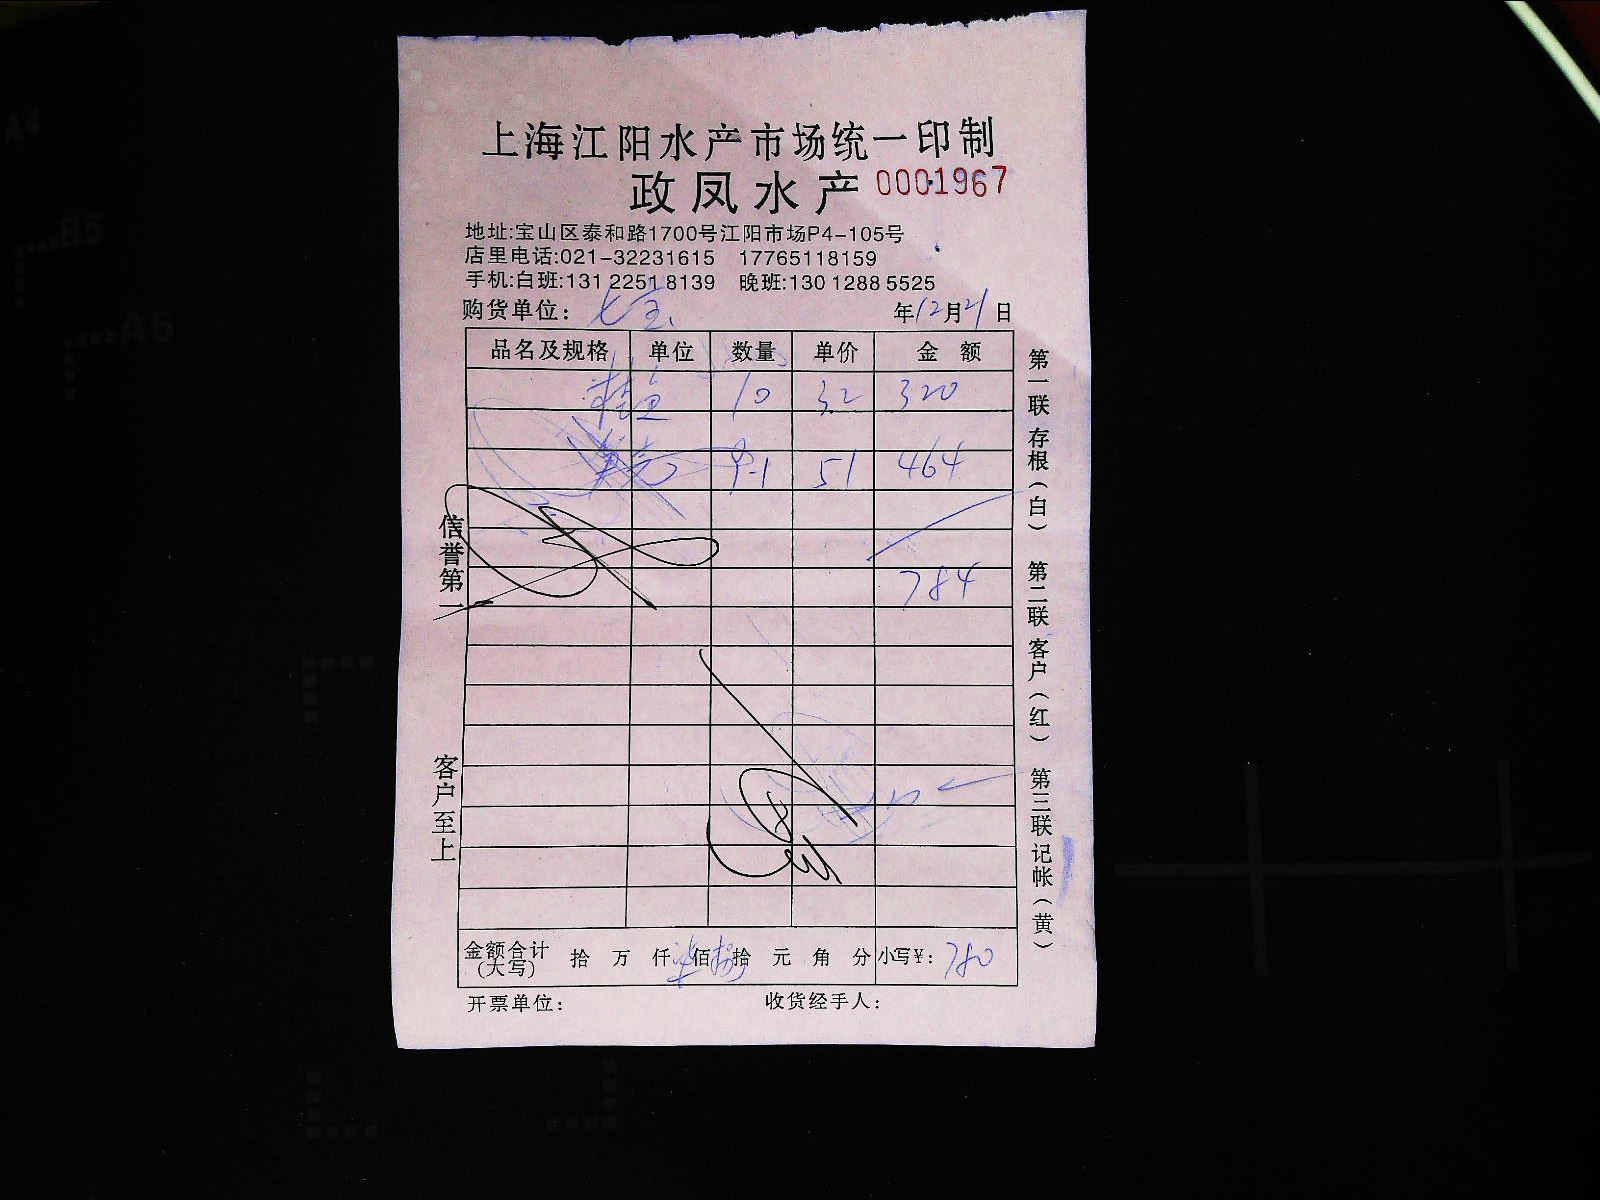 上海江阳水产市场统一印制
政凤水产 0001967
地址:宝山区泰和路1700号江阳市场P4-105号
店里电话:021-32231615 17765118159
手机:白班:131 2251 8139 晚班:130 1288 5525
购货单位: 七宝 年12月21日
品名及规格 单位 数量 单价 金额
桂鱼 10 32 320
9.1 51 464
784
金额合计(大写) 拾 万 仟 柒佰 捌拾 元 角 分 小写¥: 780
开票单位: 收货经手人:
信誉第一
客户至上
第一联存根(白)
第二联客户(红)
第三联记帐(黄)
A4
B5
A5